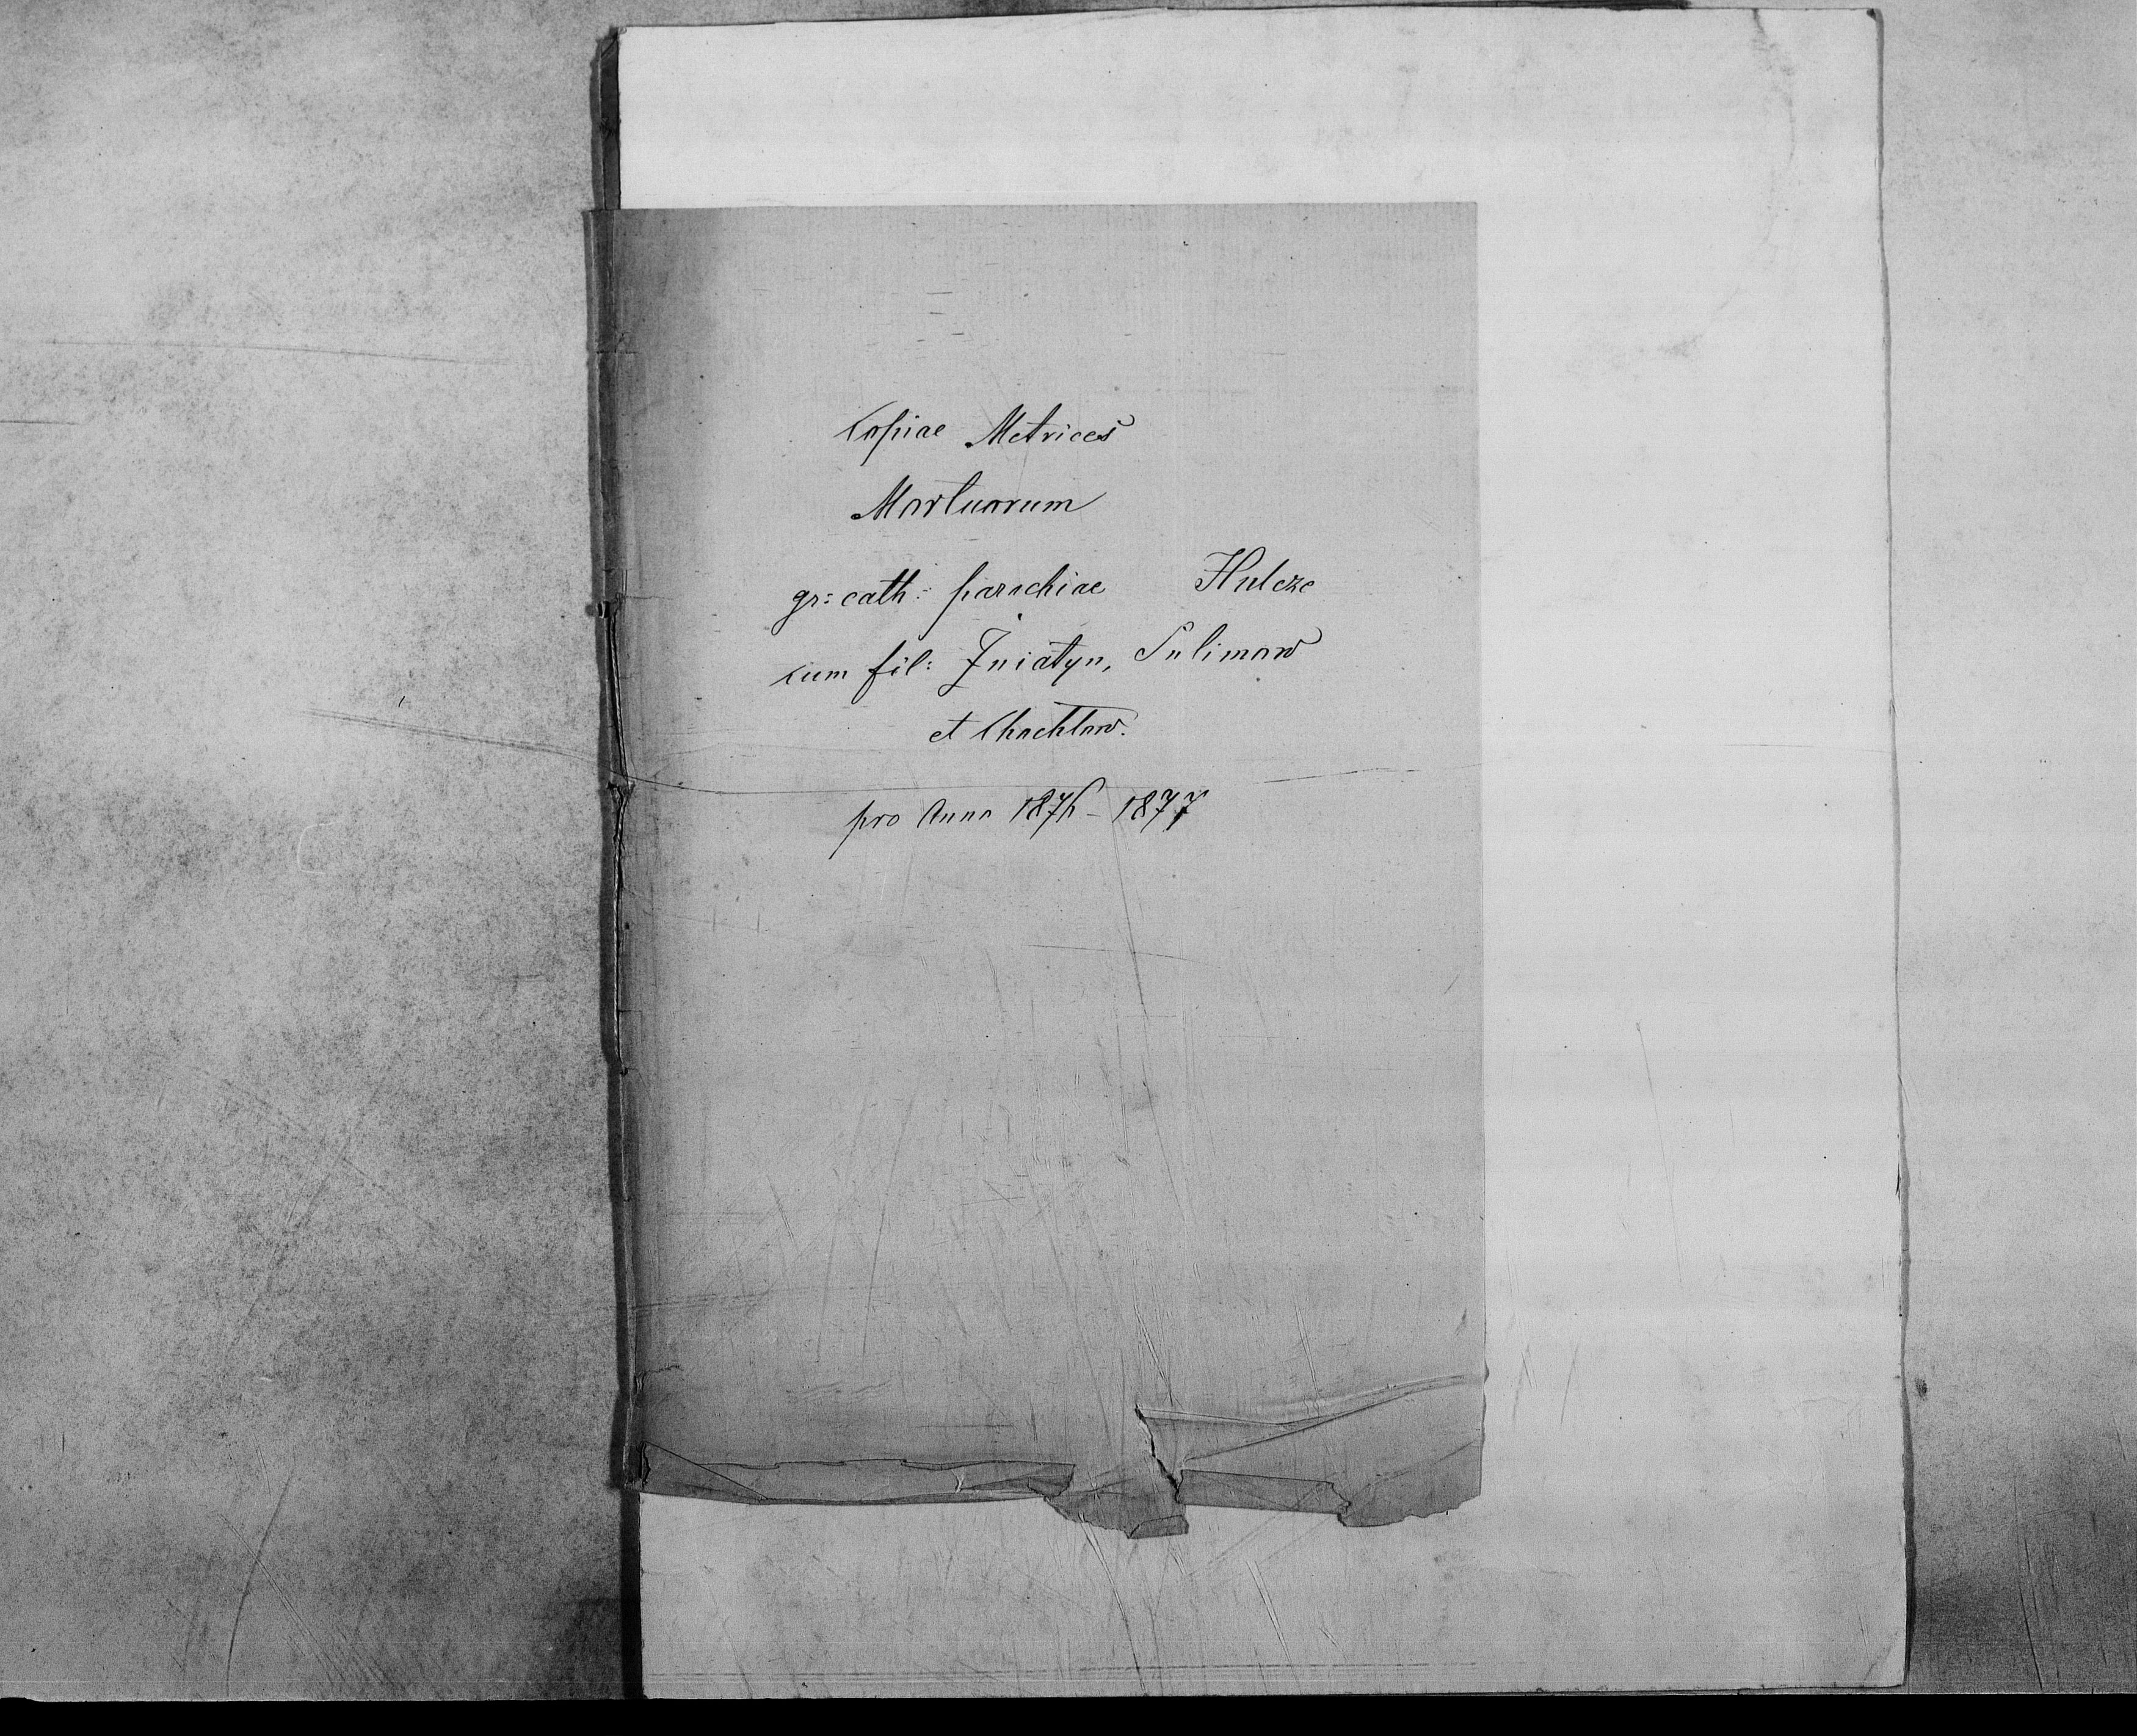 Copiae Metrices
Mortuorum
gr: cath: parochiae Hulcze
cum fil: Żniatyn, Sulimow
et Chochlow.
pro Anno 1876 - 1877